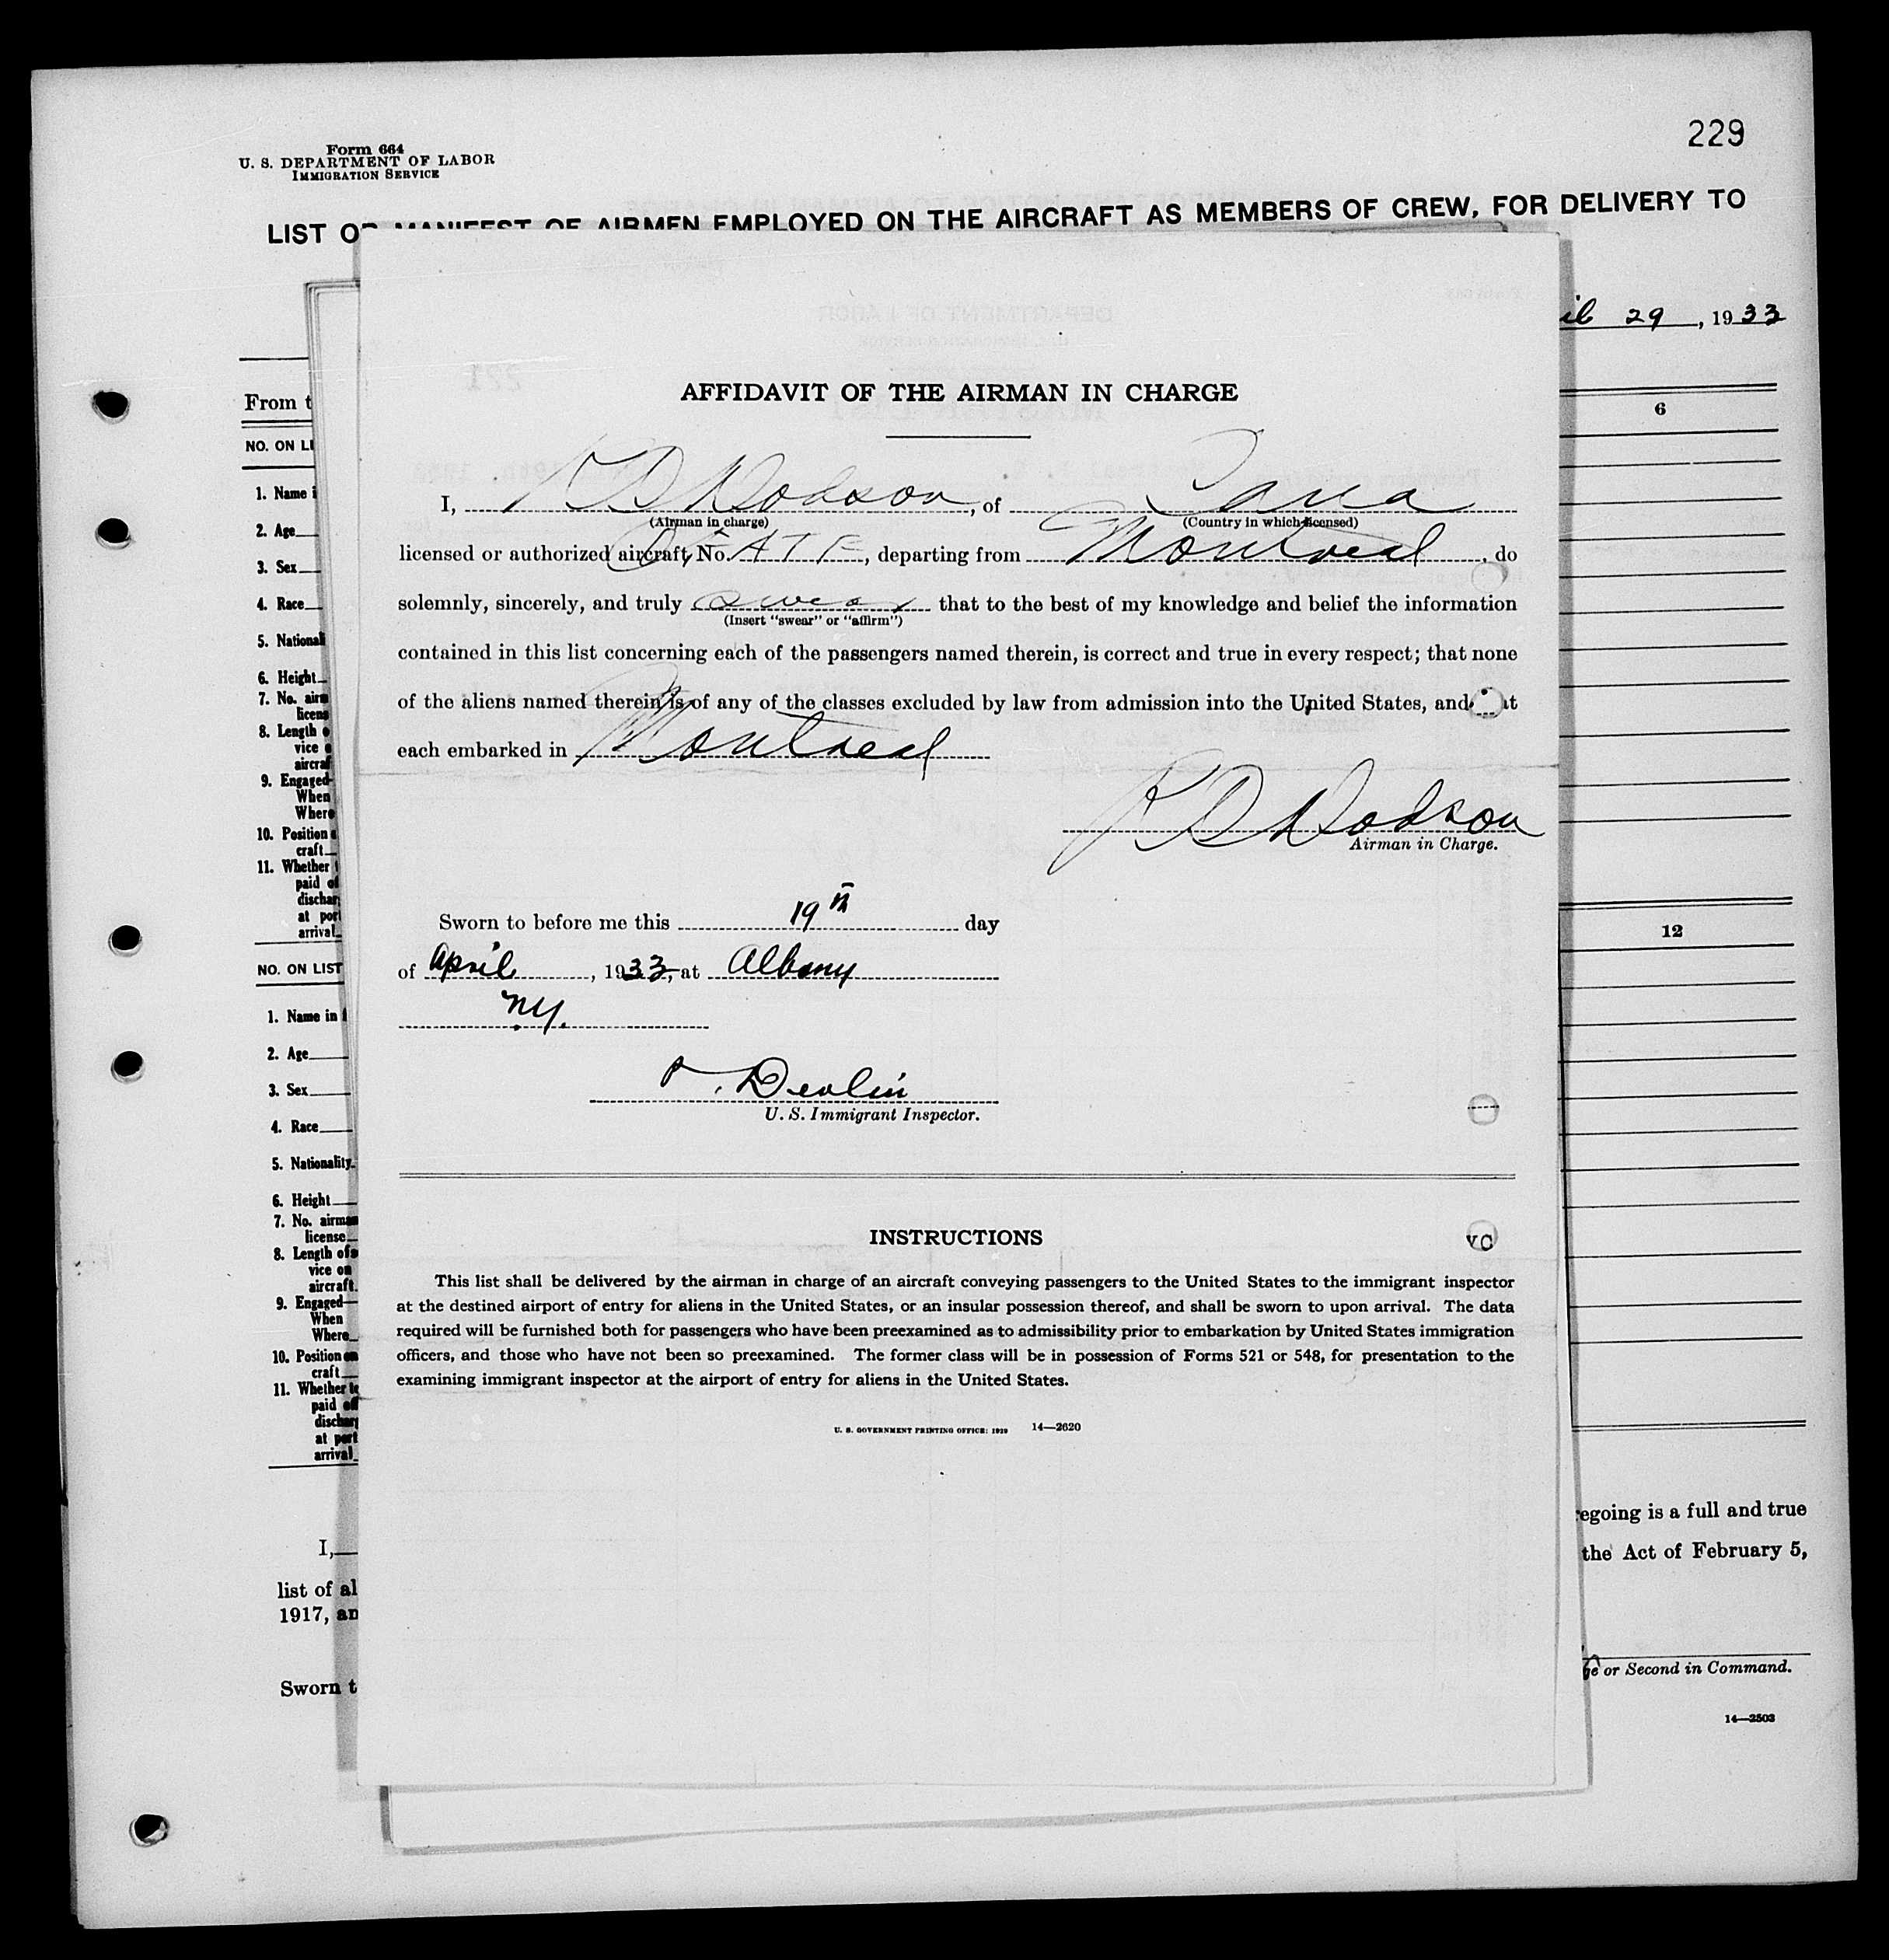 229
Form 664
U. S. DEPARTMENT OF LABOR
IMMIGRATION SERVICE
LIST OR MANIFEST OF AIRMEN EMPLOYED ON THE AIRCRAFT AS MEMBERS OF CREW, FOR DELIVERY TO
29, 1933
From t
6
NO. ON LI
1. Name i
2. Age
3. Sex
4. Race
5. Nationali
6. Height
7. No. airm
licens
8. Length o
vice o
aircraf
9. Engaged
When
Where
10. Position
craft
11. Whether t
paid of
dischar
at port
arrival
12
NO. ON LIST
1. Name in
2. Age
3. Sex
4. Race
5. Nationality
6. Height
7. No. airman
license
8. Length of s
vice on
aircraft
9. Engaged
When
Where
10. Position on
craft
11. Whether to
paid off
discharg
at port
arrival
I,
list of al
1917, an
Sworn t
egoing is a full and true
the Act of February 5,
ge or Second in Command.
14—2503
AFFIDAVIT OF THE AIRMAN IN CHARGE
I, Dodson, of
(Airman in charge) (Country in which licensed)
licensed or authorized aircraft, No. , departing from Montreal, do
solemnly, sincerely, and truly swear that to the best of my knowledge and belief the information
(Insert "swear" or "affirm")
contained in this list concerning each of the passengers named therein, is correct and true in every respect; that none
of the aliens named therein is of any of the classes excluded by law from admission into the United States, and at
each embarked in Montreal
Dodson
Airman in Charge.
Sworn to before me this 19th day
of April, 1933, at Albany
NY.
Devlin
U. S. Immigrant Inspector.
INSTRUCTIONS
VC
This list shall be delivered by the airman in charge of an aircraft conveying passengers to the United States to the immigrant inspector
at the destined airport of entry for aliens in the United States, or an insular possession thereof, and shall be sworn to upon arrival. The data
required will be furnished both for passengers who have been preexamined as to admissibility prior to embarkation by United States immigration
officers, and those who have not been so preexamined. The former class will be in possession of Forms 521 or 548, for presentation to the
examining immigrant inspector at the airport of entry for aliens in the United States.
U. S. GOVERNMENT PRINTING OFFICE: 1929 14—2620